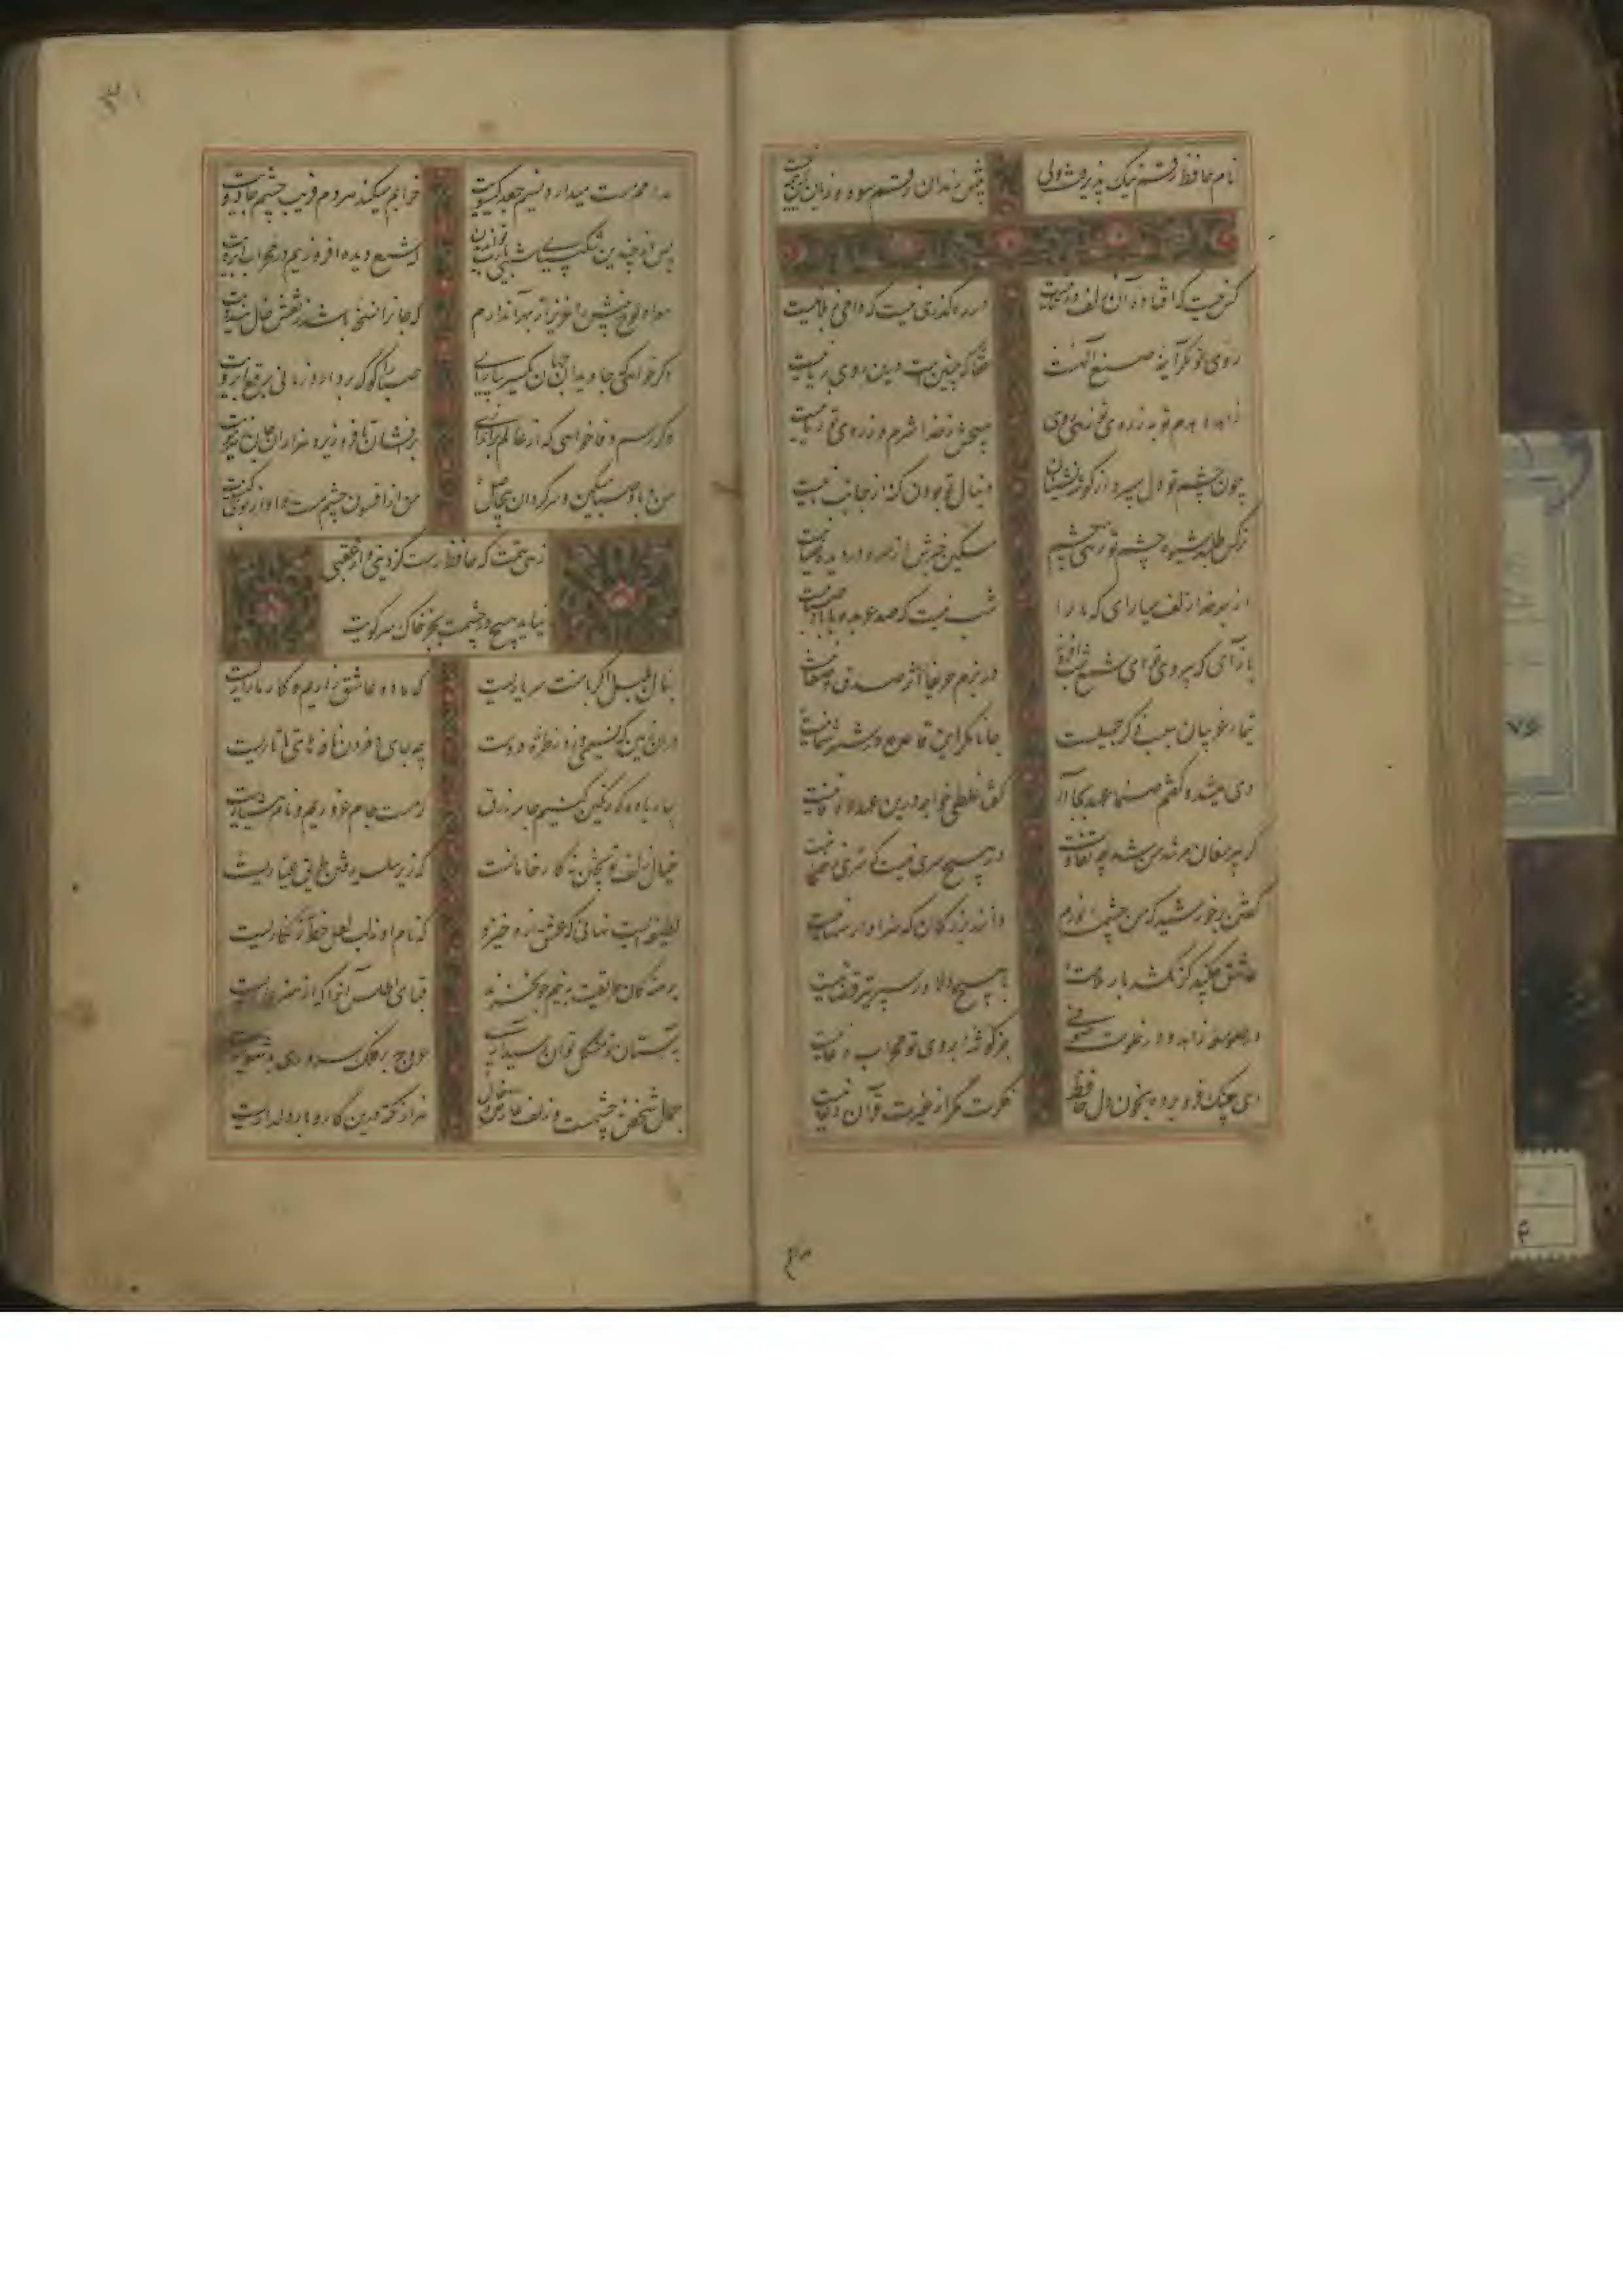 نام حافظ رقم نیک پذیرفت ولی
پیش رندان رقم سود و زیان این همه نیست
کس نیست که افتاده آن زلف دوتا نیست
در رهگذری نیست که دامی ز بلا نیست
روی تو مگر آینه صنع الهست
حقا که چنین است و درین روی و ریا نیست
زاهد دهدم توبه ز روی تو زهی روی
هیچش ز خدا شرم و ز روی تو حیا نیست
چون چشم تو دل می‌برد از گوشه نشینان
دنبال تو بودن گنه از جانب ما نیست
نرگس طلبد شیوه چشم تو زهی چشم
مسکین خبرش از سر و در دیده حیا نیست
از بهر خدا زلف میارای که ما را
شب نیست که صد عربده با باد صبا نیست
بازآی که بی روی تو ای شمع شب افروز
در بزم حریفان اثر صدق و صفا نیست
تیمار غریبان سبب ذکر جمیلست
جانا مگر این قاعده در شهر شما نیست
دی میشد و گفتم صنما عهد بجا آر
گفتا غلطی خواجه درین عهد وفا نیست
گر پیر مغان مرشد من شد چه تفاوت
در هیچ سری نیست که سری ز خدا نیست
گفتن بر خورشید که من چشمه نورم
دانند بزرگان که سزاوار سها نیست
عاشق چکند گر نکشد بار ملامت
با هیچ دلاور سپر تیر قضا نیست
در صومعه زاهد و در خلوت صوفی
جز گوشه ابروی تو محراب دعا نیست
ای چنگ فرو برده بخون دل حافظ
فکرت مگر از غیرت قرآن و خدا نیست
مدامم مست میدارد نسیم جعد گیسویت
خرابم میکند هر دم فریب چشم جادویت
پس از چندین شکیبایی شبی یارب توان دیدن
که شمع دیده افروزیم در محراب ابرویت
سواد لوح بینش را عزیز از بهر آن دارم
که جان را نسخه باشد ز نقش خال هندویت
اگر خواهی که جاویدان جهان یکسر بیارایی
صبا را گو که بردارد زمانی برقع از رویت
وگر رسم وفا خواهی که از عالم براندازی
برافشان تا فرو ریزد هزاران جان ز هر مویت
من و باد صبا مسکین و سرگردان بیحاصل
من از افسون چشمت مست و او از بوی گیسویت
زهی همت که حافظ راست کز دینی و از عقبی
نیاید هیچ در چشمش بجز خاک سر کویت
بنال بلبل اگر با منت سر یاریست
که ما دو عاشق زاریم و کار ما زاریست
در آن زمین که نسیمی وزد ز طره دوست
چه جای دم زدن نافه های تاتاریست
بیار باده که رنگین کنیم جامه زرق
که مست جام غروریم و نام هشیاریست
خیال زلف تو پختن نه کار خامانست
که زیر سلسله رفتن طریق عیاریست
لطیفه ایست نهانی که عشق ازو خیزد
که نام او نه لب لعل و خط زنگاریست
برهنگان طریقت به نیم جو نخرند
قبای اطلس آنکو که از هنر عاریست
بر آستان تو مشکل توان رسید آری
عروج بر فلک سروری بدشواریست
جمال شخص نه چشمست و زلف و عارض و خال
هزار نکته درین کار و بار دلداریست
۷۶